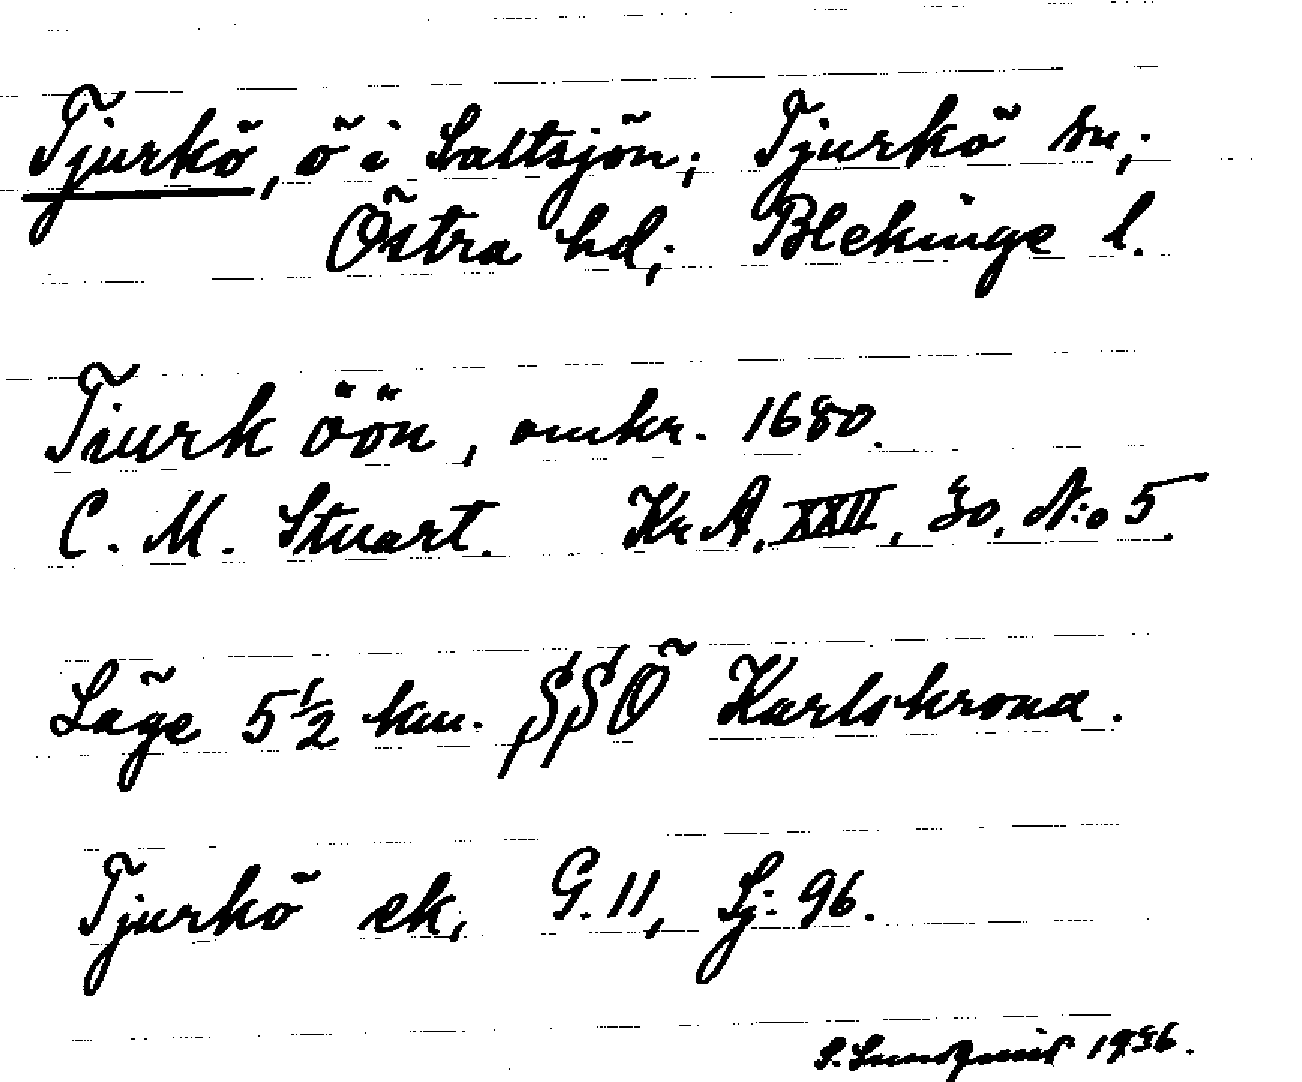 Tjurkö, ö i Saltsjön; Tjurkö sn;
Östra hd; Blekinge l.
Tiurk öön, omkr. 1680.
C. M. Stuart. Kr A. XXII, 30. N:o 5.
Läge 5½ km. SSÖ Karlskrona.
Tjurkö ek. G. 11, Sj: 96.
S. Lundqvist 1936.